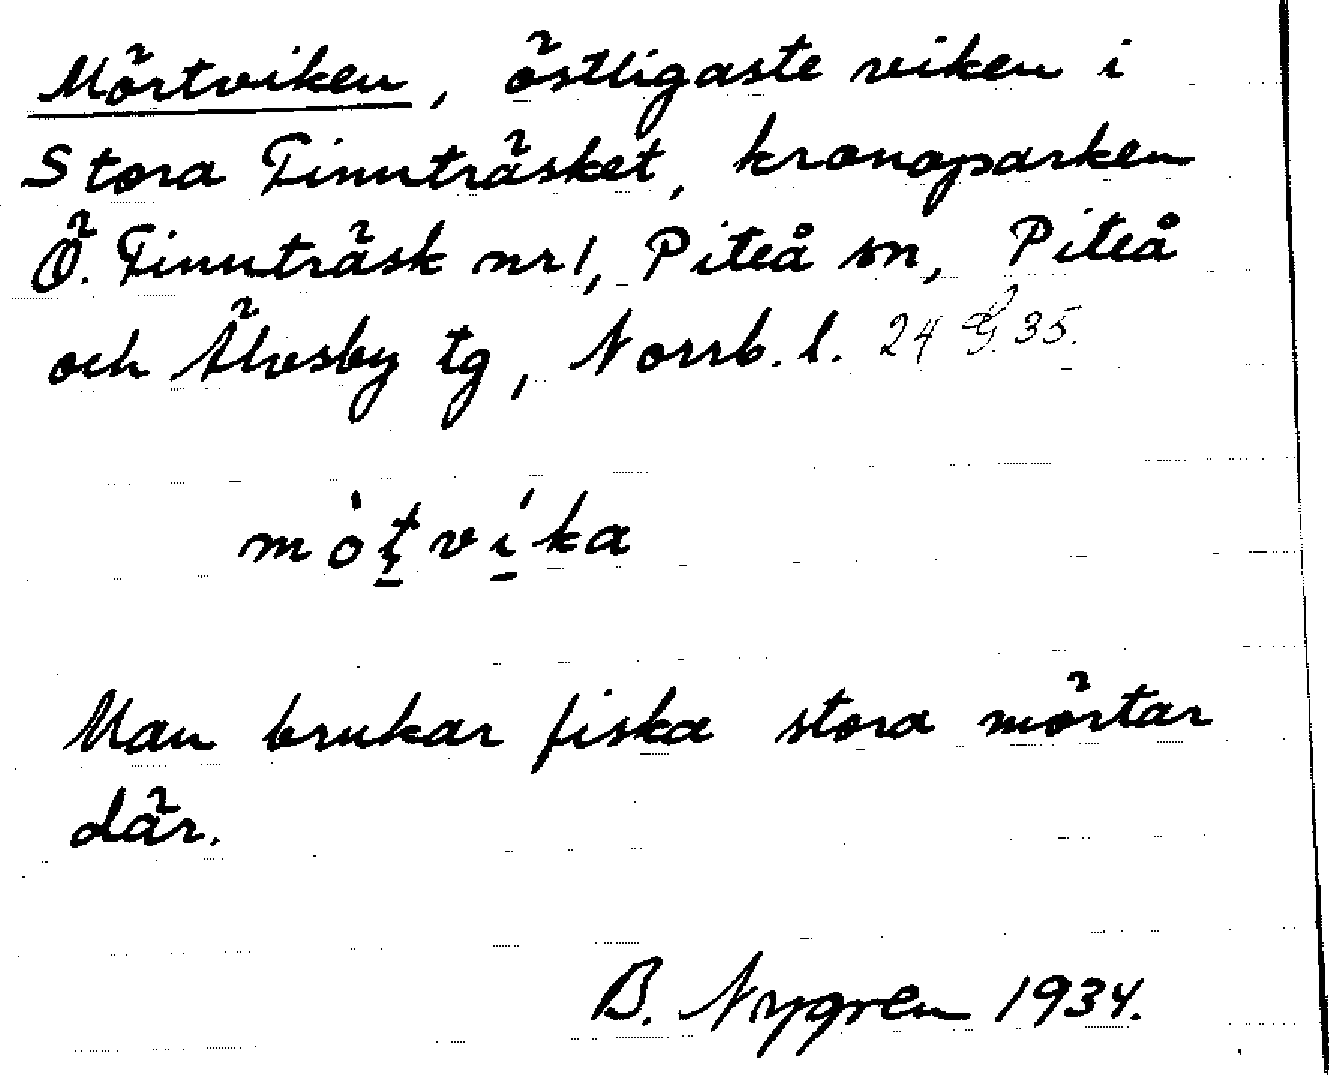 Mörtviken, östligaste viken i
Stora Finnträsket, kronoparken
Ö. Finnträsk nr 1, Piteå sn, Piteå
och Älvsby tg, Norrb. l. 24 G. 35.
mòt̲víka
Man brukar fiska stora mörtar
där.
B. Nygren 1934.